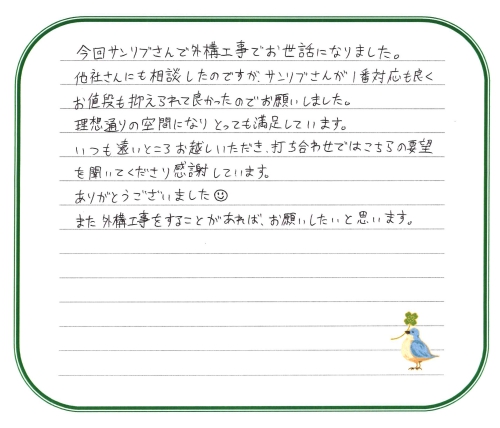 今回サンリブさんで外構工事でお世話になりました。
他社さんにも相談したのですが、サンリブさんが1番対応も良く
お値段も抑えられて良かったのでお願いしました。
理想通りの空間になりとっても満足しています。
いつも遠いところお越しいただき、打ち合わせではこちらの要望
を聞いてくださり感謝しています。
ありがとうございました☺
また外構工事をすることがあれば、お願いしたいと思います。